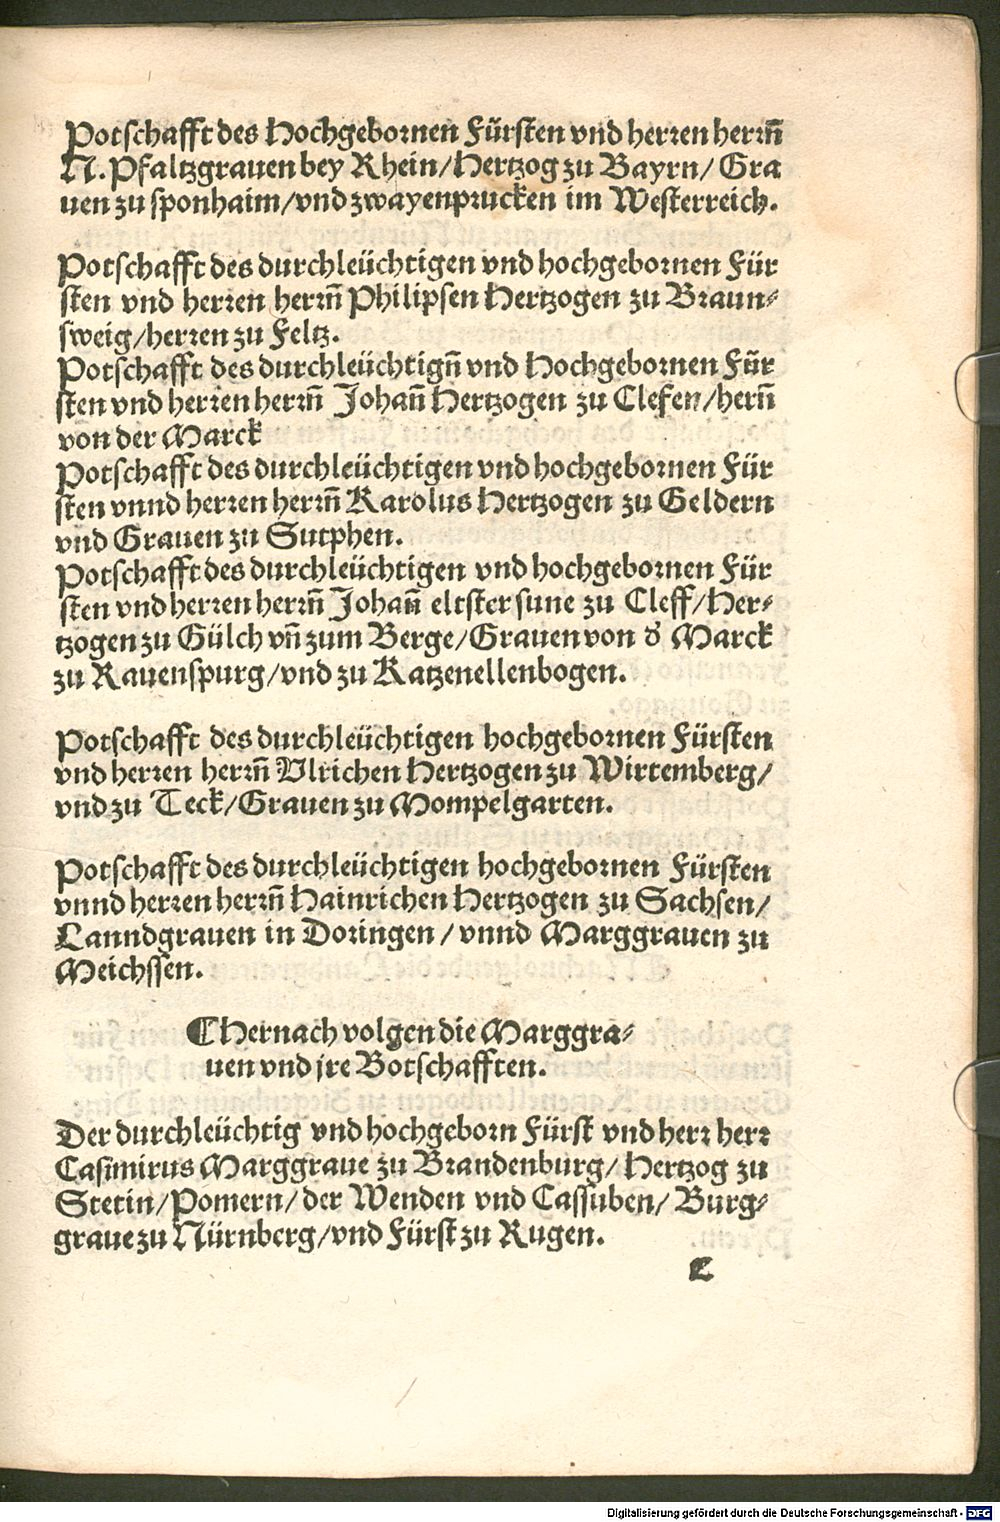 Potschafft des Hochgebornen Fürsten vnd herren herrñ
N. Pfaltzgrauen bey Rhein/Hertzog zu Bayrn/ Gra
uen zu sponhaim/vnd zwayenprucken im Westerreich.
Potschafft des durchleüchtigen vnd hochgebornen Für
sten vnd herren herrñ Philipsen Hertzogen zu Braun⸗
sweig/herren zu Feltz.
Potschafft des durchleüchtigñ vnd Hochgebornen Für
sten vnd herren herrñ Johañ Hertzogen zu Clefen/herñ
von der Marck
Potschafft des durchleüchtigen vnd hochgebornen Für
sten vnnd herren herrñ Karolus Hertzogen zu Geldern
vnd Grauen zu Sutphen.
Potschafft des durchleüchtigen vnd hochgebornen Für
sten vnd herren herrñ Johañ eltster sune zu Cleff/Her⸗
tzogen zu Gülch vñ zum Berge/Grauen von d' Marck
zu Rauenspurg/vnd zu Katzenellenbogen.
Potschafft des durchleüchtigen hochgebornen Fürsten
vnd herren herrñ Vlrichen Hertzogen zu Wirtemberg/
vnd zu Teck/Grauen zu Mompelgarten.
Potschafft des durchleüchtigen hochgebornen Fürsten
vnnd herren herrñ Hainrichen Hertzogen zu Sachsen/
Lanndgrauen in Doringen/vnnd Marggrauen zu
Meichssen.
¶Hernach volgen die Marggra⸗
uen vnd jre Botschafften.
Der durchleüchtig vnd hochgeborn Fürst vnd herr herr
Casimirus Marggraue zu Brandenburg/Hertzog zu
Stetin/Pomern/der Wenden vnd Cassuben/Burg⸗
graue zu Nürnberg/vnd Fürst zu Rugen.
C
Digitalisierung gefördert durch die Deutsche Forschungsgemeinschaft - DFG